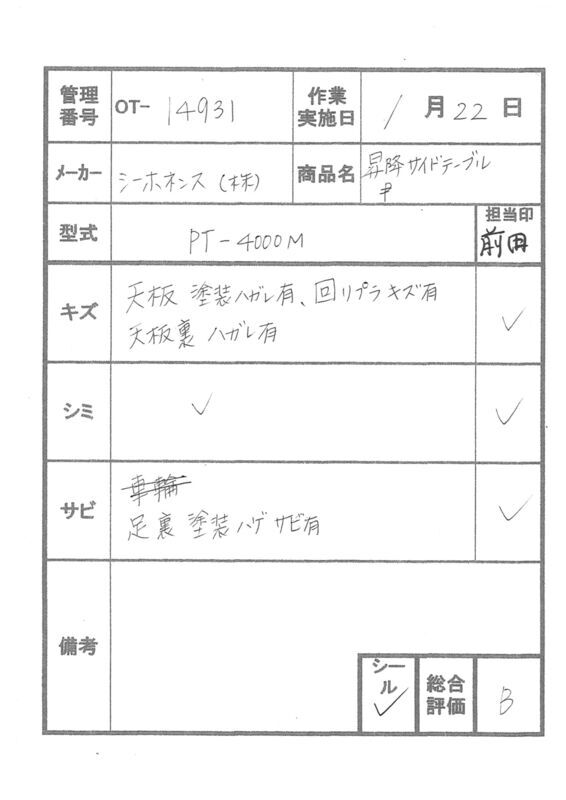 管理番号 OT- 14931 作業実施日 1月22日
メーカー シーホネンス(株) 商品名 昇降サイドテーブル
型式 PT-4000M 担当印 前田
キズ 天板 塗装ハガレ有、回リプラキズ有 ✓
天板裏 ハガレ有
シミ ✓ ✓
サビ 車輪 ✓
足裏 塗装ハゲ サビ有
備考
シール ✓ 総合評価 B